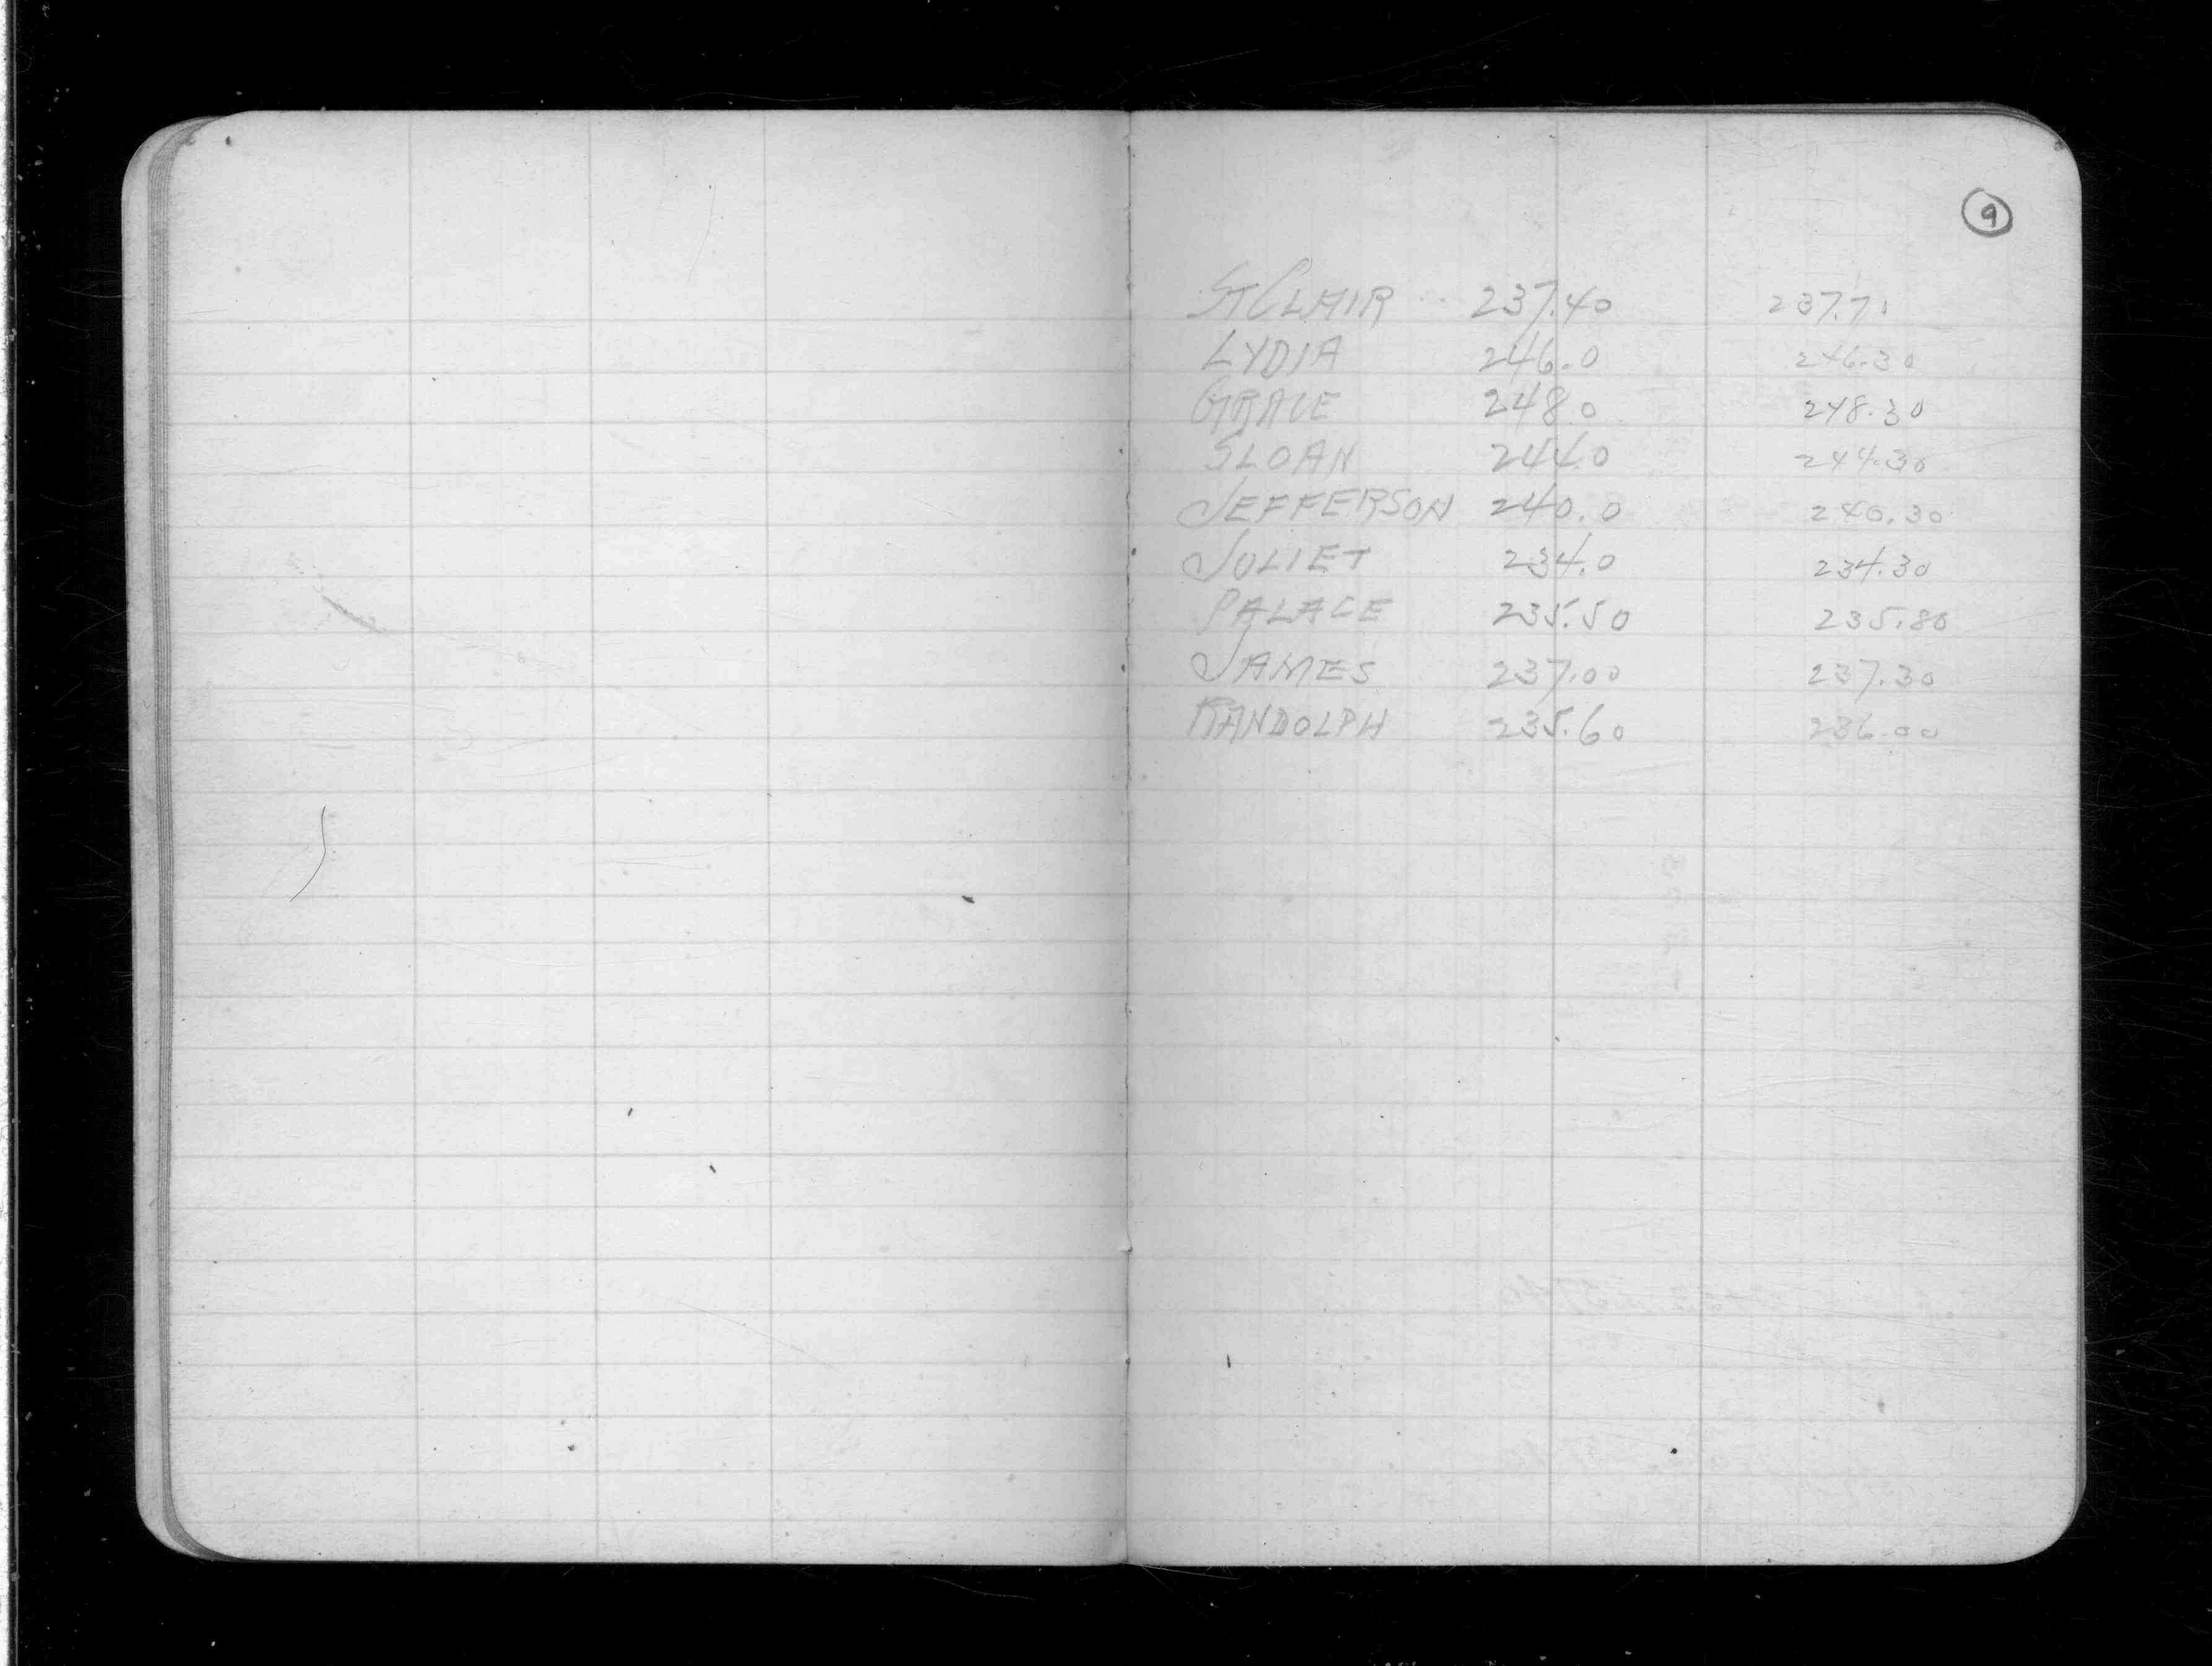 9
ST CLAIR .. 237.40 237.71
LYDIA 246.0 246.30
GRACE 248.0 248.30
SLOAN 244.0 244.30
JEFFERSON 240.0 240.30
JOLIET 234.0 234.30
PALACE 235.50 235.80
JAMES 237.00 237.30
RANDOLPH 235.60 236.00